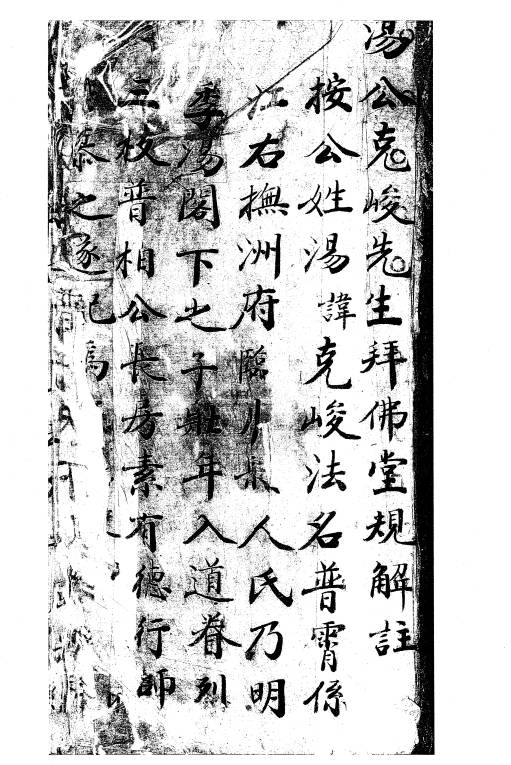 湯公克峻先生拜佛堂規解註
按公姓湯諱克峻法名普霄係
江右撫洲府臨川縣人氏乃明
季湯閣下之子壯年入道眷列
三枝普相公長房素有德行師
之遂記焉